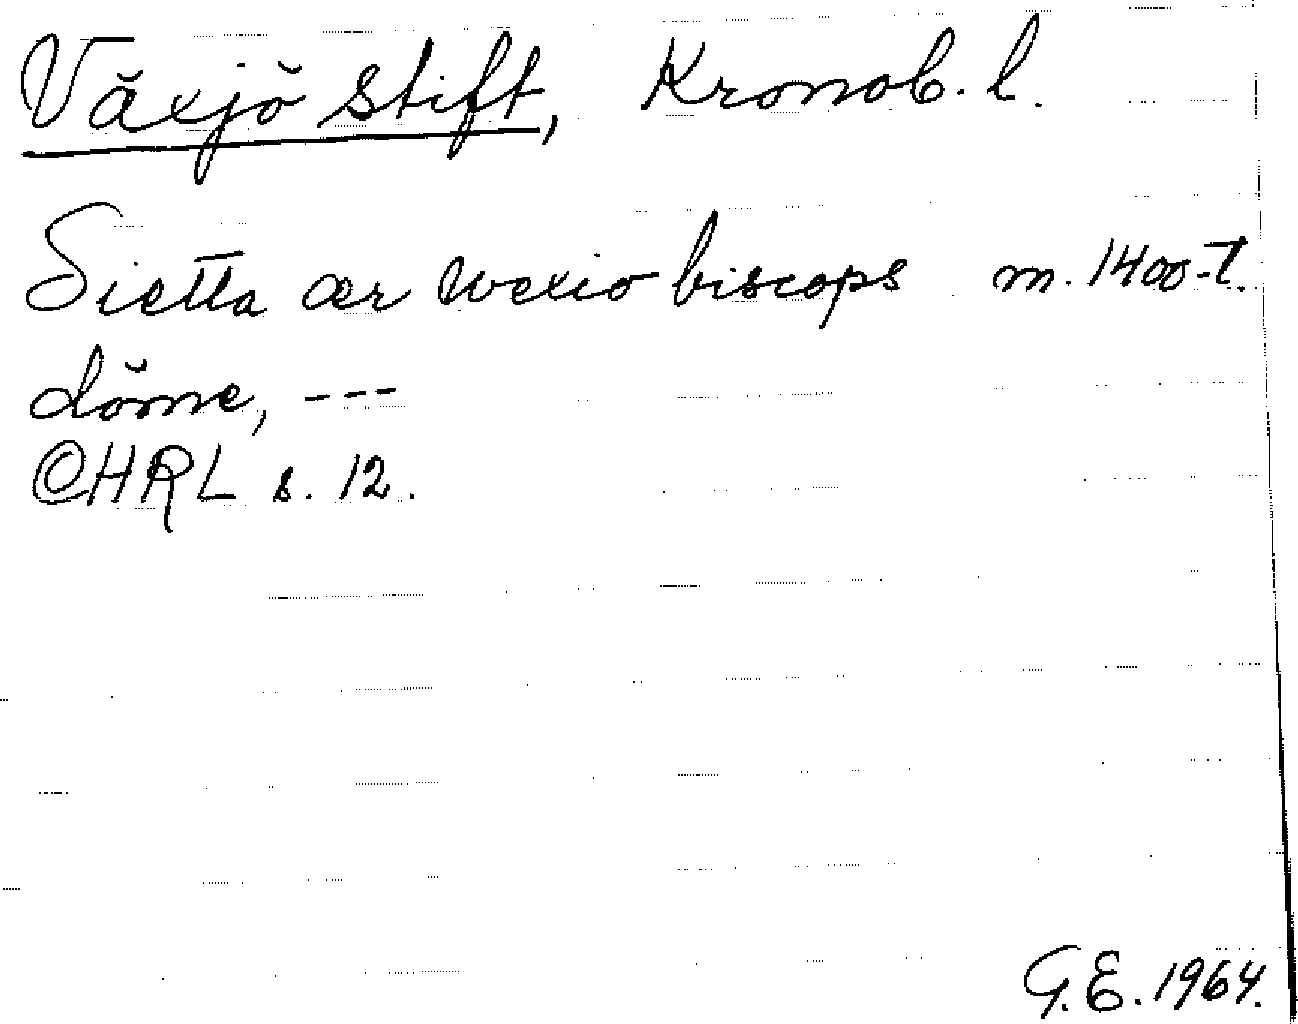 Växjö stift, Kronob. l.
Sietta ær wexio biscops m. 1400-t.
döme, ---
©HRL s. 12.
G.E. 1964.